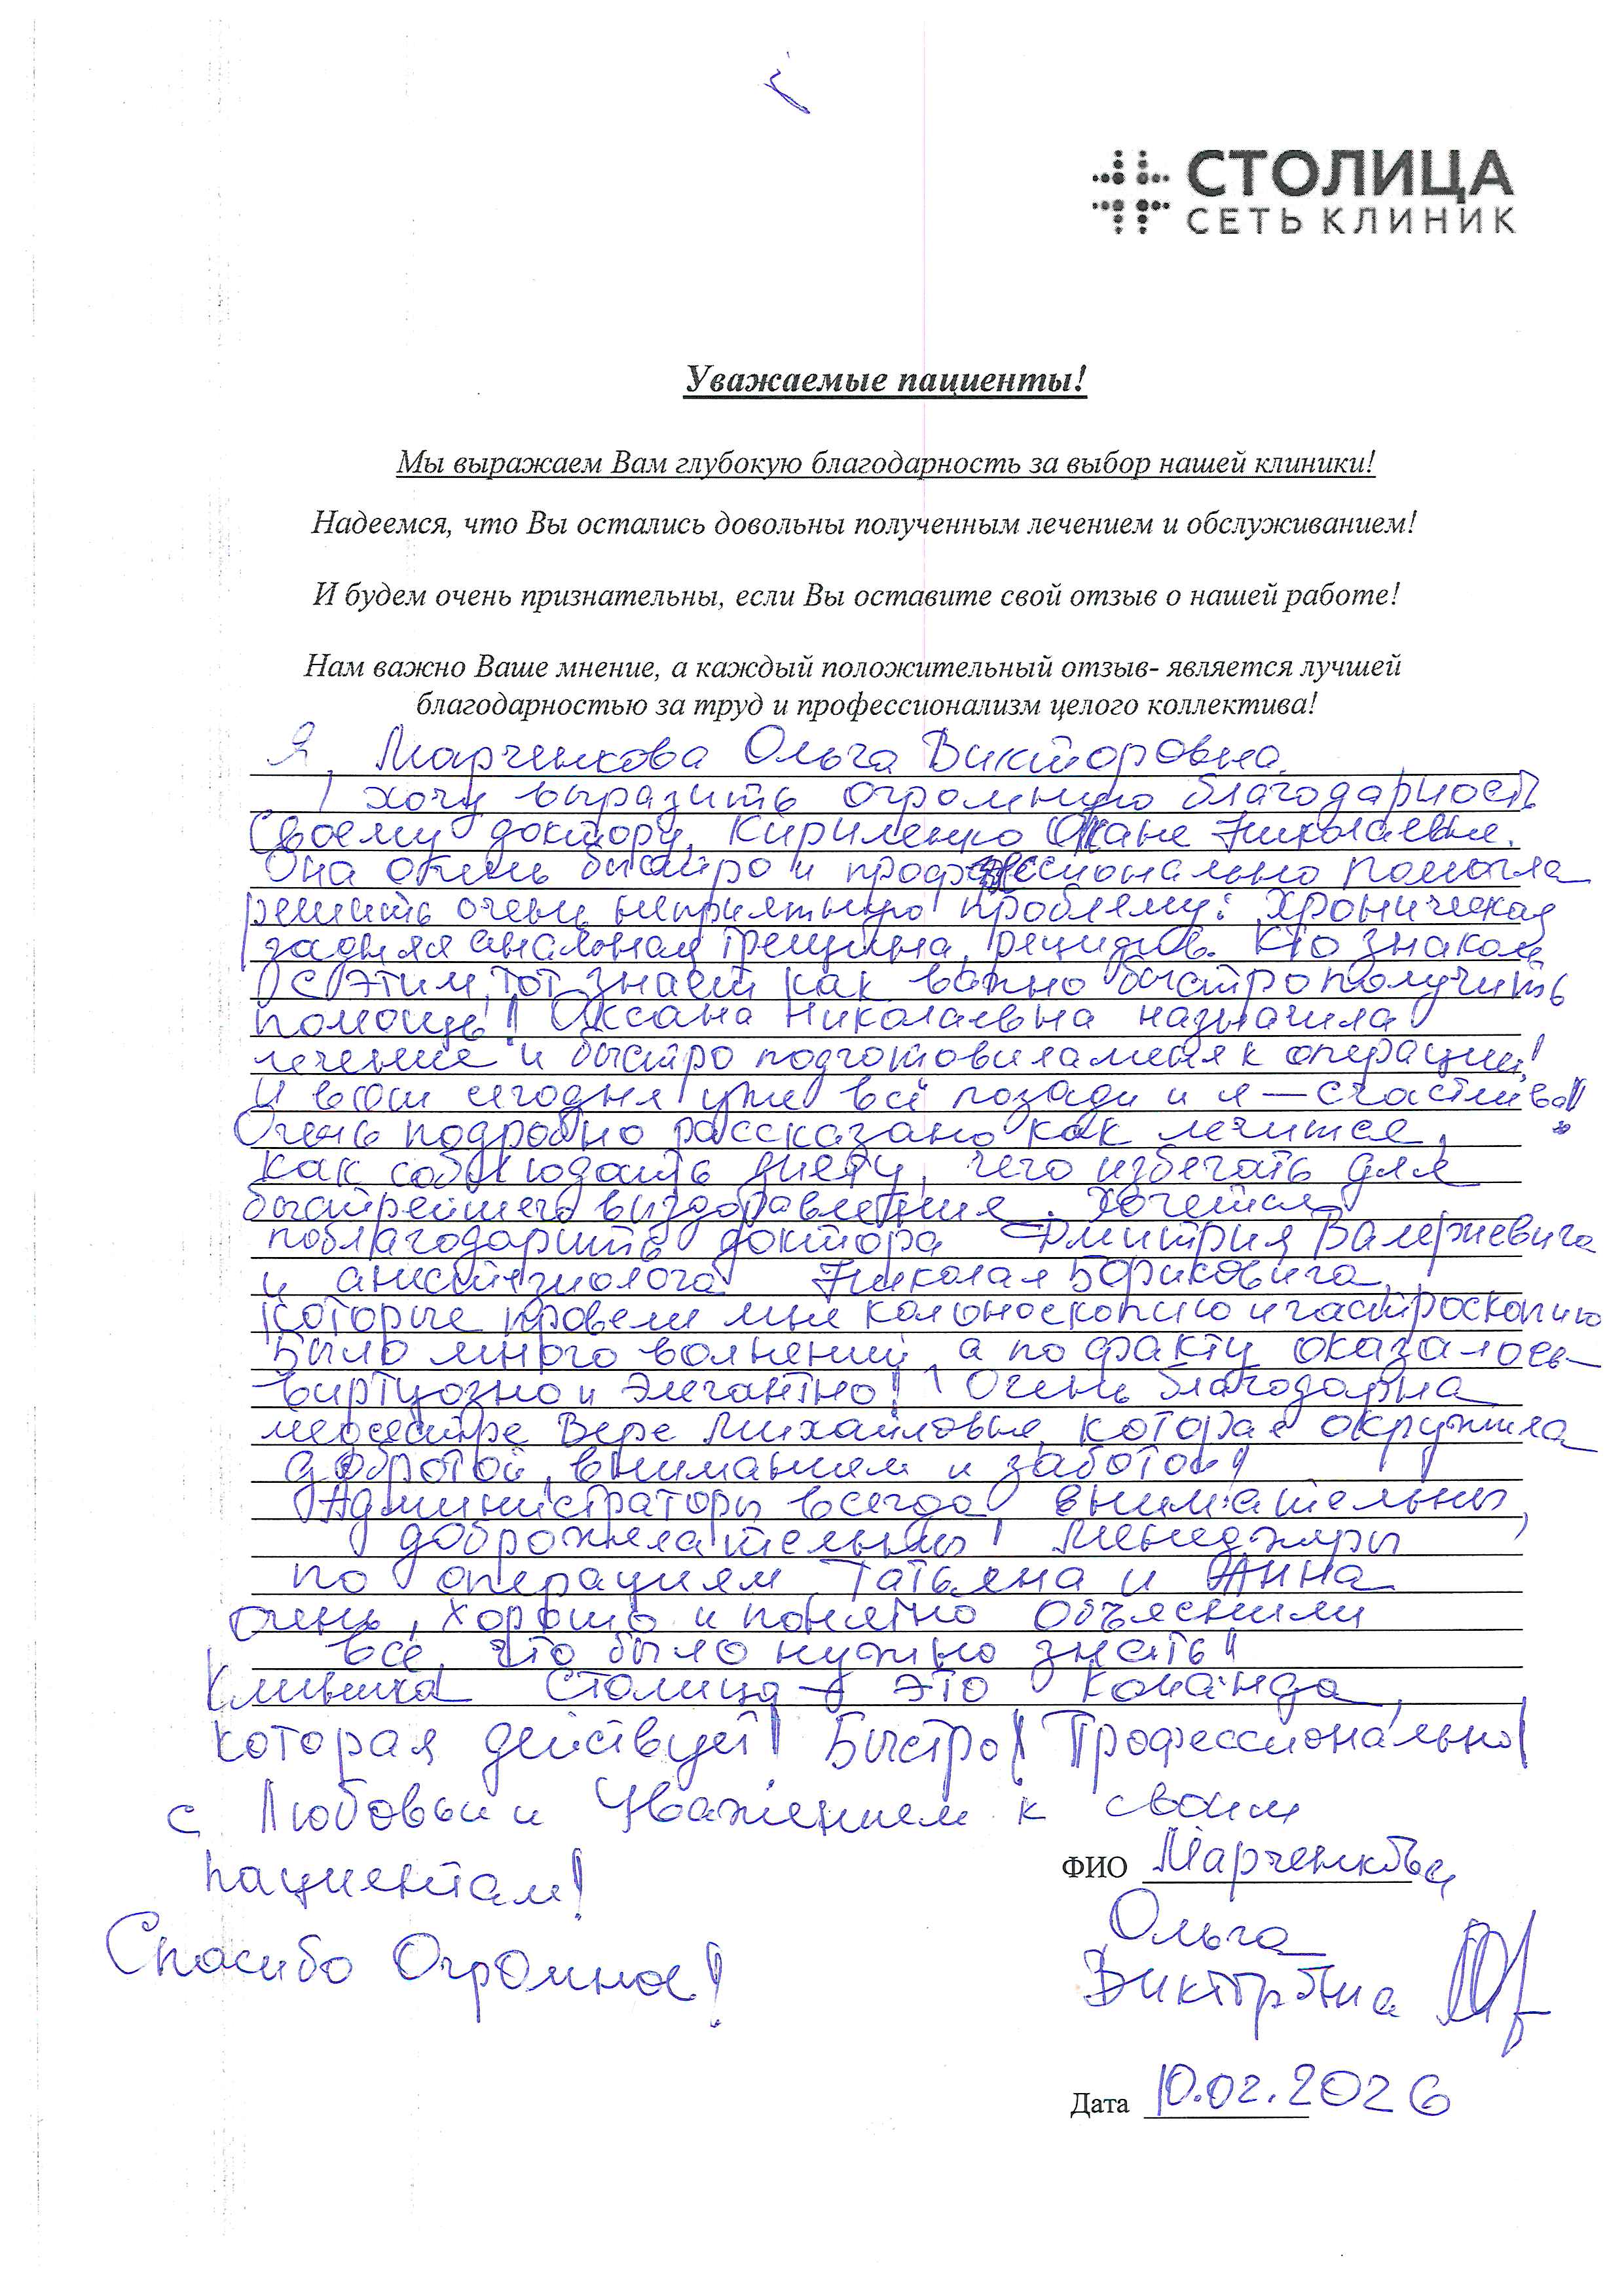 СТОЛИЦА
СЕТЬ КЛИНИК
Уважаемые пациенты!
Мы выражаем Вам глубокую благодарность за выбор нашей клиники!
Надеемся, что Вы остались довольны полученным лечением и обслуживанием!
И будем очень признательны, если Вы оставите свой отзыв о нашей работе!
Нам важно Ваше мнение, а каждый положительный отзыв- является лучшей
благодарностью за труд и профессионализм целого коллектива!
Я, Марченкова Ольга Викторовна
хочу выразить огромную благодарность
своему доктору, Кириленко Оксане Николаевне.
Она очень быстро и профессионально помогла
решить очень неприятную проблему: Хроническая
задняя анальная трещина, рецидив. Кто знаком
с этим, тот знает как важно быстро получить
помощь! Оксана Николаевна назначила
лечение и быстро подготовила меня к операции!
И вот сегодня уже всё позади и я — счастлива!!
Очень подробно рассказано как лечится,
как соблюдать диету, чего избегать для
быстрейшего выздоравления. Хочется
поблагодарить доктора Дмитрия Валериевича
и анестезиолога Николая Борисовича,
которые провели мне колоноскопию и гастроскопию
Было много волнений, а по факту оказалось
виртуозно и элегантно! Очень благодарна
медсестре Вере Михайловне, которая окружила
добротой, вниманием и заботой!
Администраторы всегда внимательны,
доброжелательны! Менеджеры
по операциям Татьяна и Анна
очень, хорошо и понятно объяснили
всё, что было нужно знать!!
Клиника Столица — это команда,
которая действует! Быстро! Профессионально!
с Любовью и Уважением к своим
пациентам!
Спасибо Огромное!
ФИО Марченкова
Ольга
Викторовна
Дата 10.02.2026